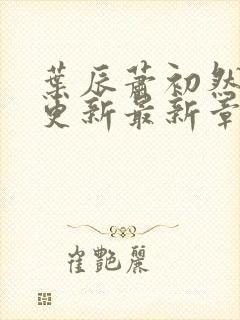 葉辰蕭初然
更新最新章
崔艷麗